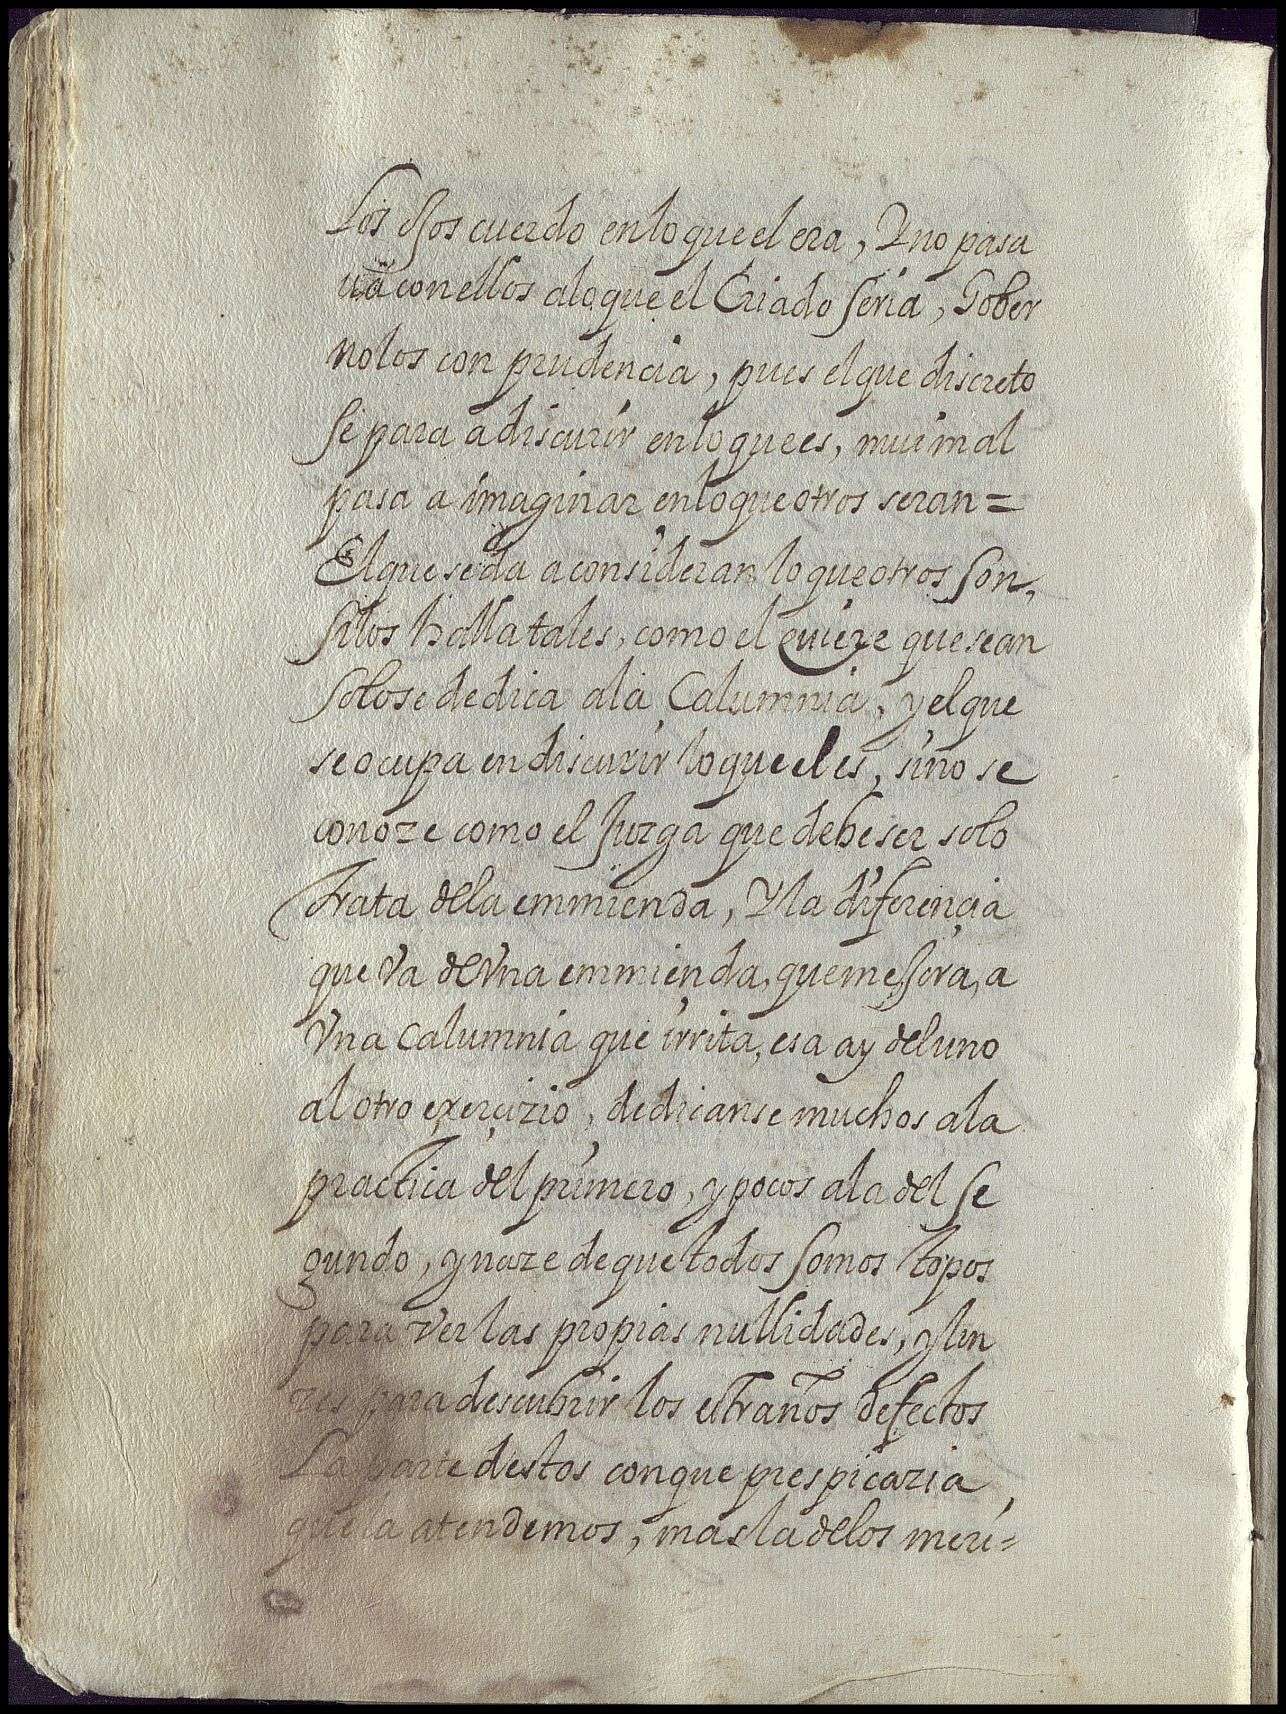 Los ojos cuerdo en lo que el era, Y no pasa
uā con ellos alo que el Criado seria, Gober
nolos con prudencia, pues el que discreto
se para a discurir en lo que es, mui mal
pasa a imaginar en lo que otros seran =
El que se da a consideran lo que otros son,
si los halla tales, como el quiere que sean
solo se dedica ala Calumnia, y el que
se ocupa en discurir lo que el es, sino se
conoze como el Juzga que debe ser solo
trata dela emmienda, Y la diferencia
que va de Vna emmienda, que mejora, a
Vna Calumnia que irrita, esa ay del uno
al otro exercizio, dedicanse muchos ala
practica del primero, y pocos ala del se
gundo, y naze de que todos somos topos
para ver las propias nullidades, y lin
zes para descubrir los estraños defectos
La parte destos con que prespicazia
que la atendemos, mas la delos meri=